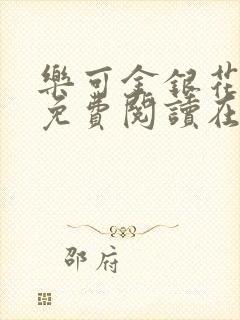 樂可金銀花
免費閱讀在
邵府